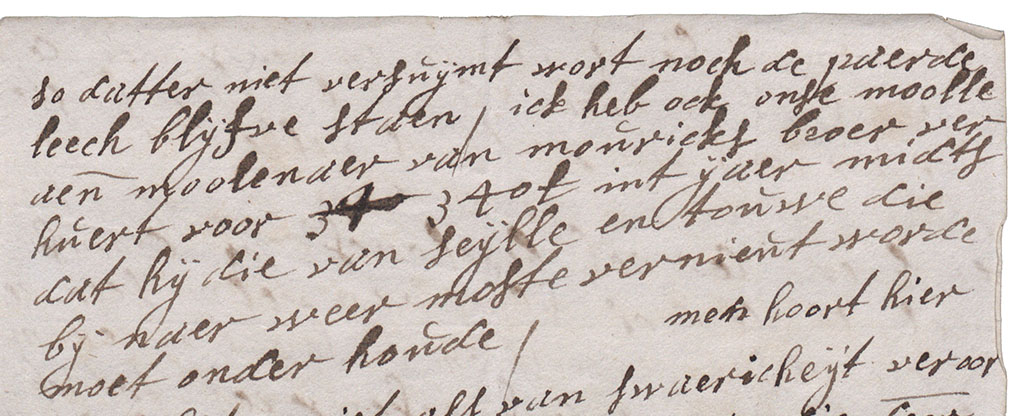 so datter niet versuÿmt wort noch de paerde
leech blijfve staen / ick heb ock onse moolle
aen moolenaer van mouricks broer ver
huert voor 340f int ÿaer midts
dat hÿ die van seÿlle en touwe die
bÿ naer weer moste vernieut worde
moet onder houde / men hoort hier
niet als van swaericheÿt veroor